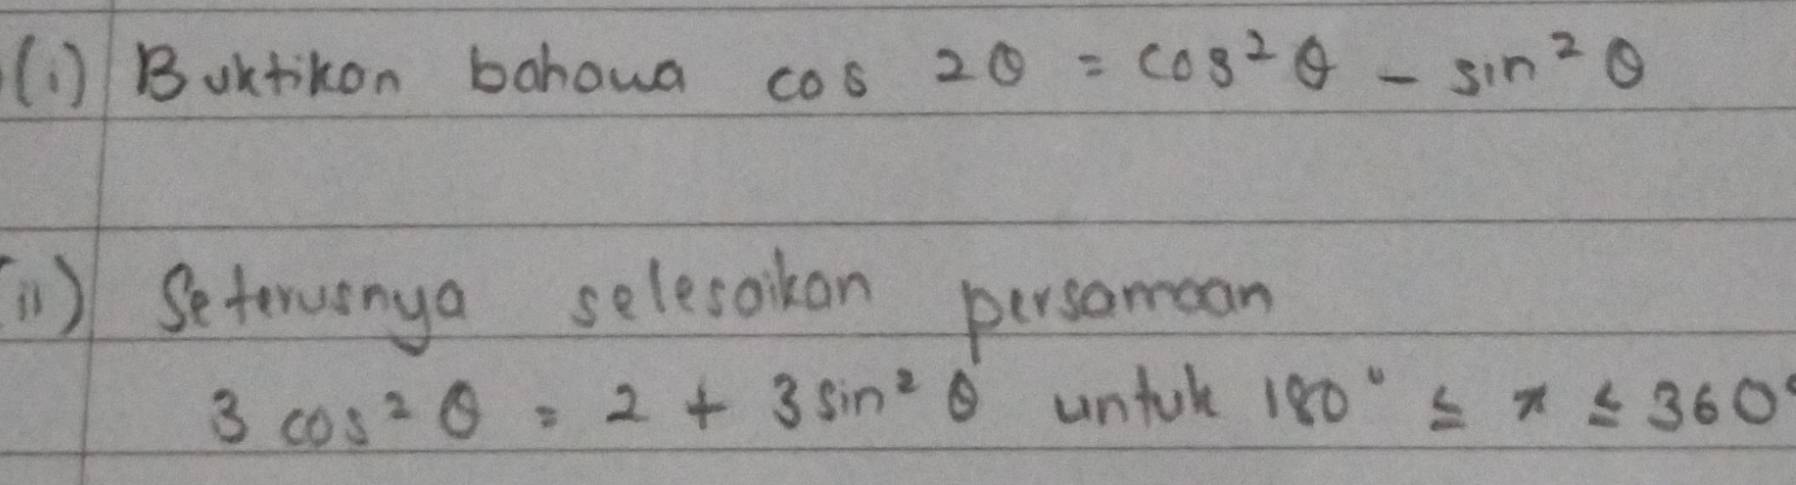 (i) Buktikan bahawa cos 2θ = cos² θ - sin² θ
(ii) Seterusnya selesaikan persamaan
3 cos² θ = 2 + 3 sin² θ untuk 180° ≤ x ≤ 360°